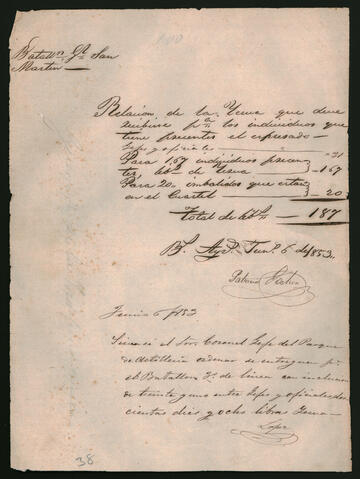 Batallon Gl San
Martin
Relacion de la Yerva que deve
recibirse pa los individuos que
tiene presentes el espresado
Jefes y oficiales — " 31
Para 167 individuos presen
tes lbs de Yerva — 167
Para 20 imbalidos que estan
en el Cuartel — 20
Total de lbs — 187
Junio 6 de 1853.
Junio 6/853
Sirvase el Sor Coronel Jefe del Parque
de Artilleria ordenar se entregue pa
el Batallon 3o de linea con inclusion
de treinta y uno entre Jefes y oficiales dos
cientas dies y ocho libras Yerva
Lopez
38